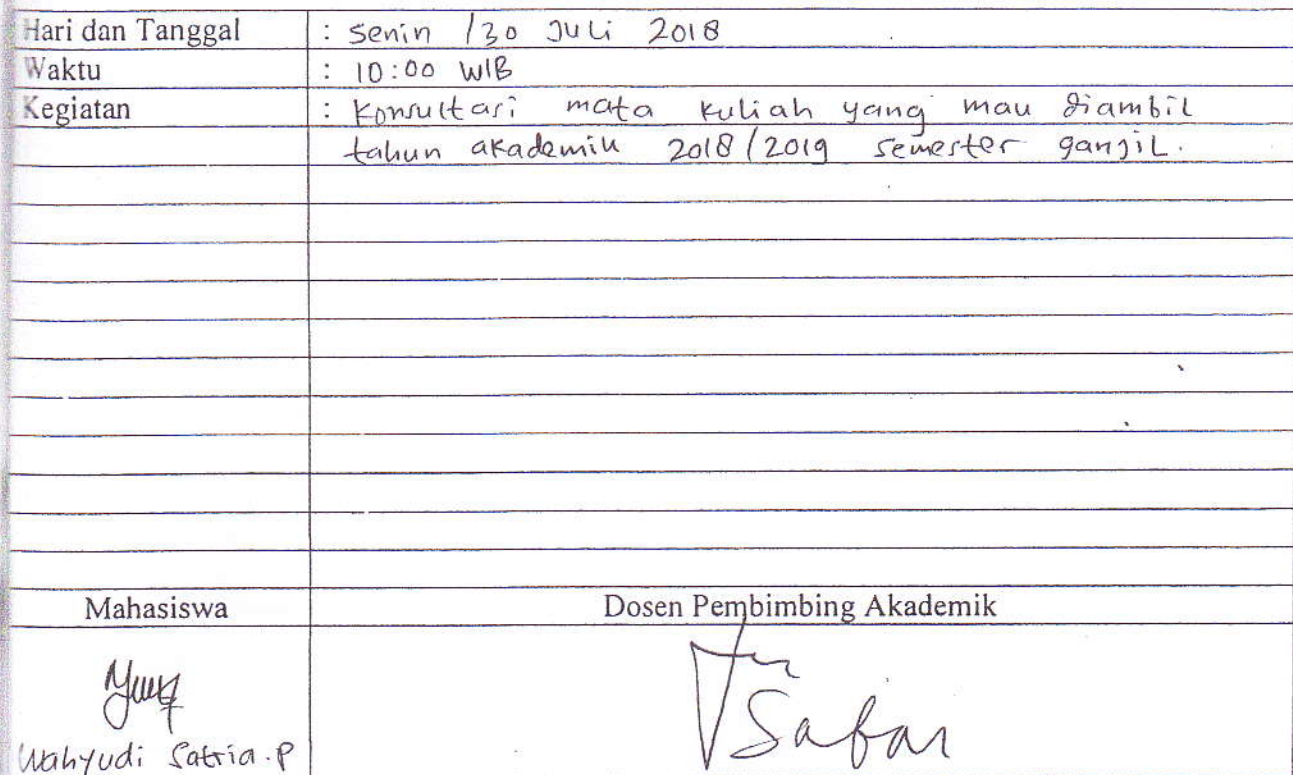 Hari dan Tanggal : Senin /30 Juli 2018
Waktu : 10:00 WIB
Kegiatan : Konsultasi mata kuliah yang mau diambil
tahun akademik 2018/2019 semester ganjil.
Mahasiswa Dosen Pembimbing Akademik
Safar
Wahyudi Satria.P